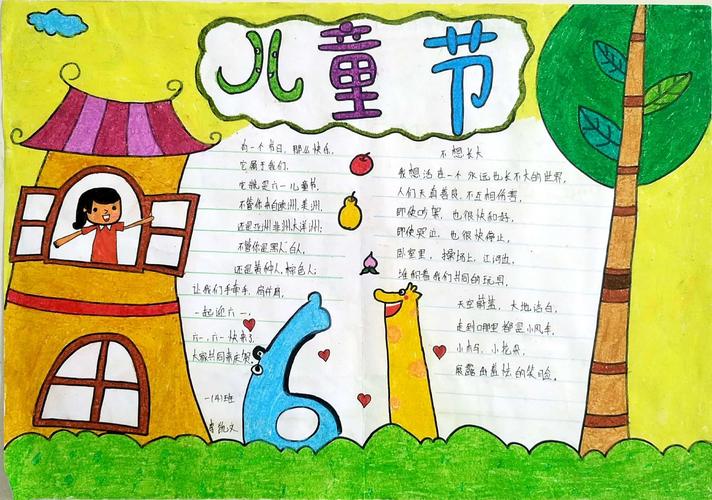 儿童节
有一个节日，那么快乐，
它属于我们，
它就是六一儿童节。
不管你来自欧洲、美洲，
还是亚洲、非洲、大洋洲；
不管你是黑人、白人，
还是黄种人、棕色人；
让我们手牵手，肩并肩，
一起迎六一，
六一，六一快来了
大家共同来
一(4)班
不想长大
我想活在一个永远也长不大的世界，
人们天真善良，不互相伤害，
即使吵架，也很快和好，
即使哭泣，也很快停止，
卧室里，操场上，江河边，
堆积着我们共同的玩具，
天空蔚蓝，大地洁白，
走到哪里都是小风车，
小木马，小花朵，
展露出羞怯的笑脸。
61